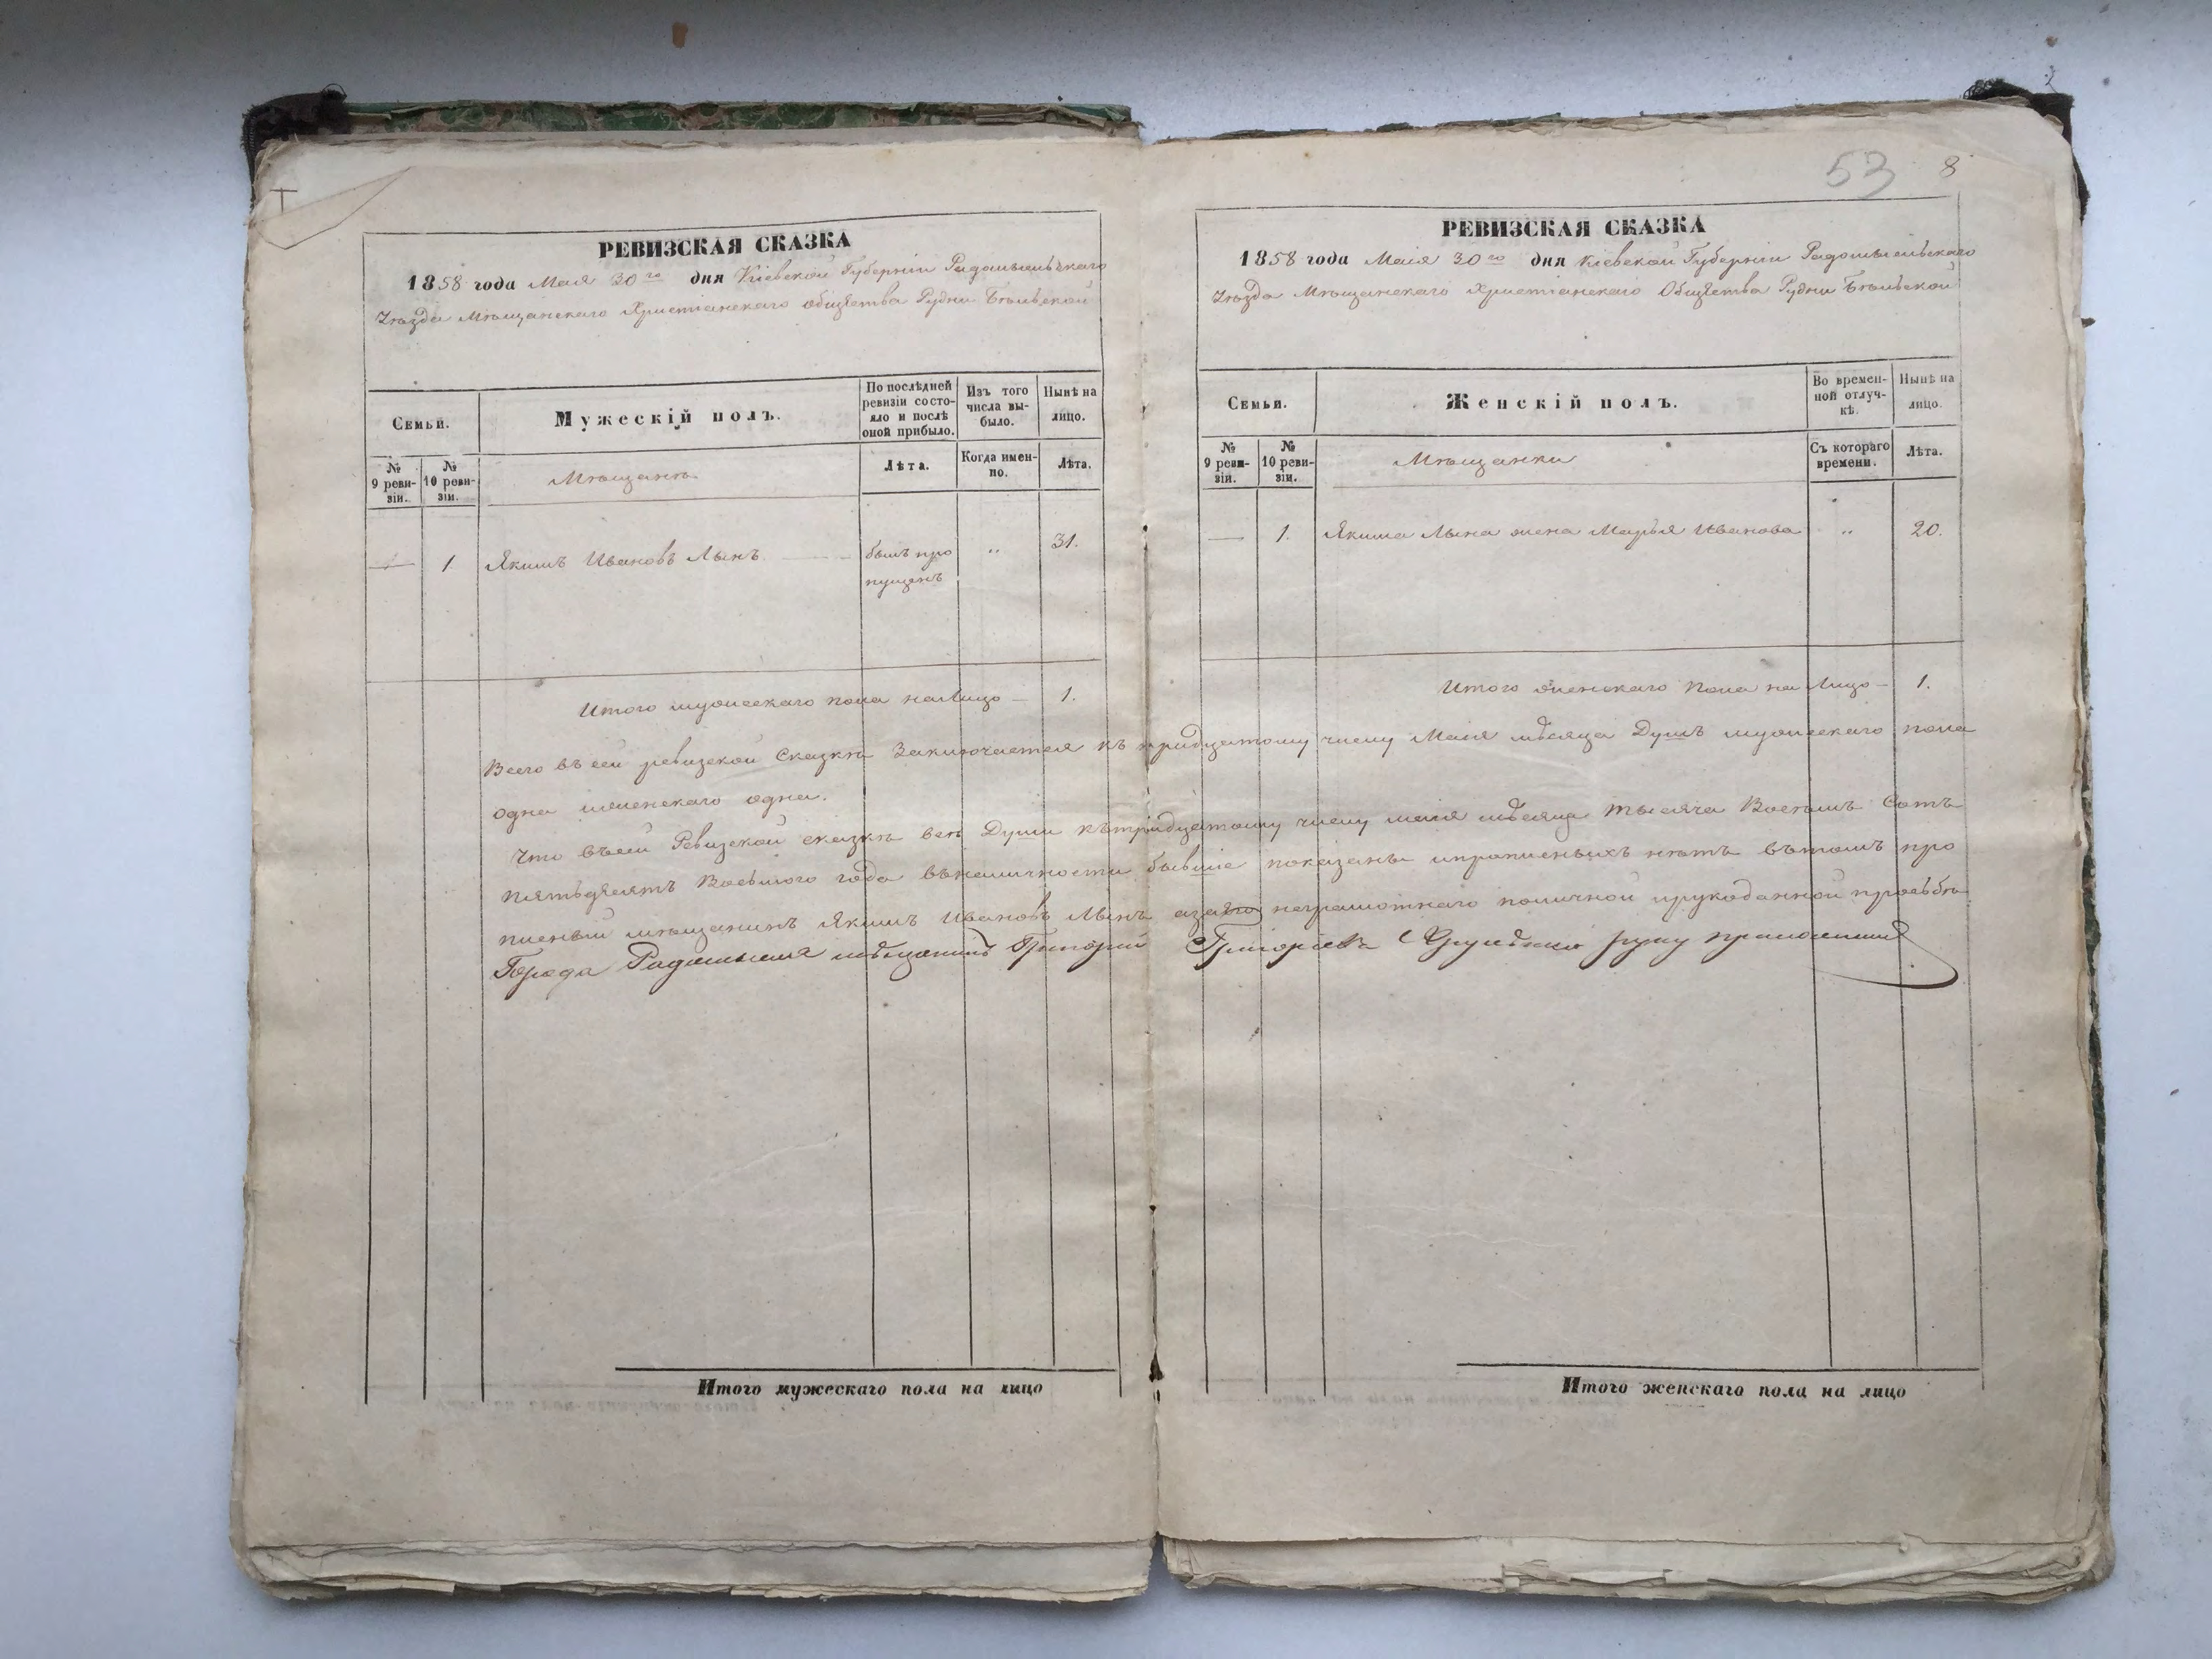 53 8
РЕВИЗСКАЯ СКАЗКА
1858 года Мая 30го дня Кіевской Губерніи Радомысльскаго
Уѣзда Мѣщанскаго Христіанскаго общества Рудни Бѣльской
Семьи.
Мужескій полъ.
По послѣдней ревизіи состо-
яло и послѣ
оной прибыло.
Изъ того
числа вы-
было.
Нынѣ на
лицо.
№
9 реви-
зіи.
№
10 реви-
зіи.
Мѣщанъ
Лѣта.
Когда имен-
но.
Лѣта.
1 Якимъ Ивановъ Лынъ былъ про „ 31.
пущенъ
Итого мужескаго пола на Лицо — 1.
РЕВИЗСКАЯ СКАЗКА
1858 года Маія 30го дня Кіевской Губерніи Радомысльскаго
Уѣзда Мѣщанскаго Христіанскаго Общества Рудни Бѣльской
Семьи.
Женскій полъ.
Во времен-
ной отлуч-
кѣ.
Нынѣ на
лицо.
№
9 реви-
зіи.
№
10 реви-
зіи.
Мѣщанки
Съ котораго
времени.
Лѣта.
— 1. Якима Лына жена Марья Иванова „ 20.
Итого женскаго Пола на Лицо — 1.
Всего въ сей ревизской Сказкѣ Заключается къ тридцатому числу Маія мѣсяца Душъ мужескаго пола
одна женскаго одна.
Что въ сей Ревизской сказкѣ всѣ Души къ тридцатому числу маія мѣсяца тысяча Восемь Сотъ
пятьдесятъ Восьмого года въ наличности бывшіе показаны и прописныхъ нѣтъ въ томъ про
писный мѣщанинъ Якимъ Ивановъ Лынъ а за неграмотнаго по личной и рукоданной прозьбѣ
Города Радомысля мѣщанинъ Григорій Григорьевъ руку приложилъ
Итого мужескаго пола на лицо
Итого женскаго пола на лицо